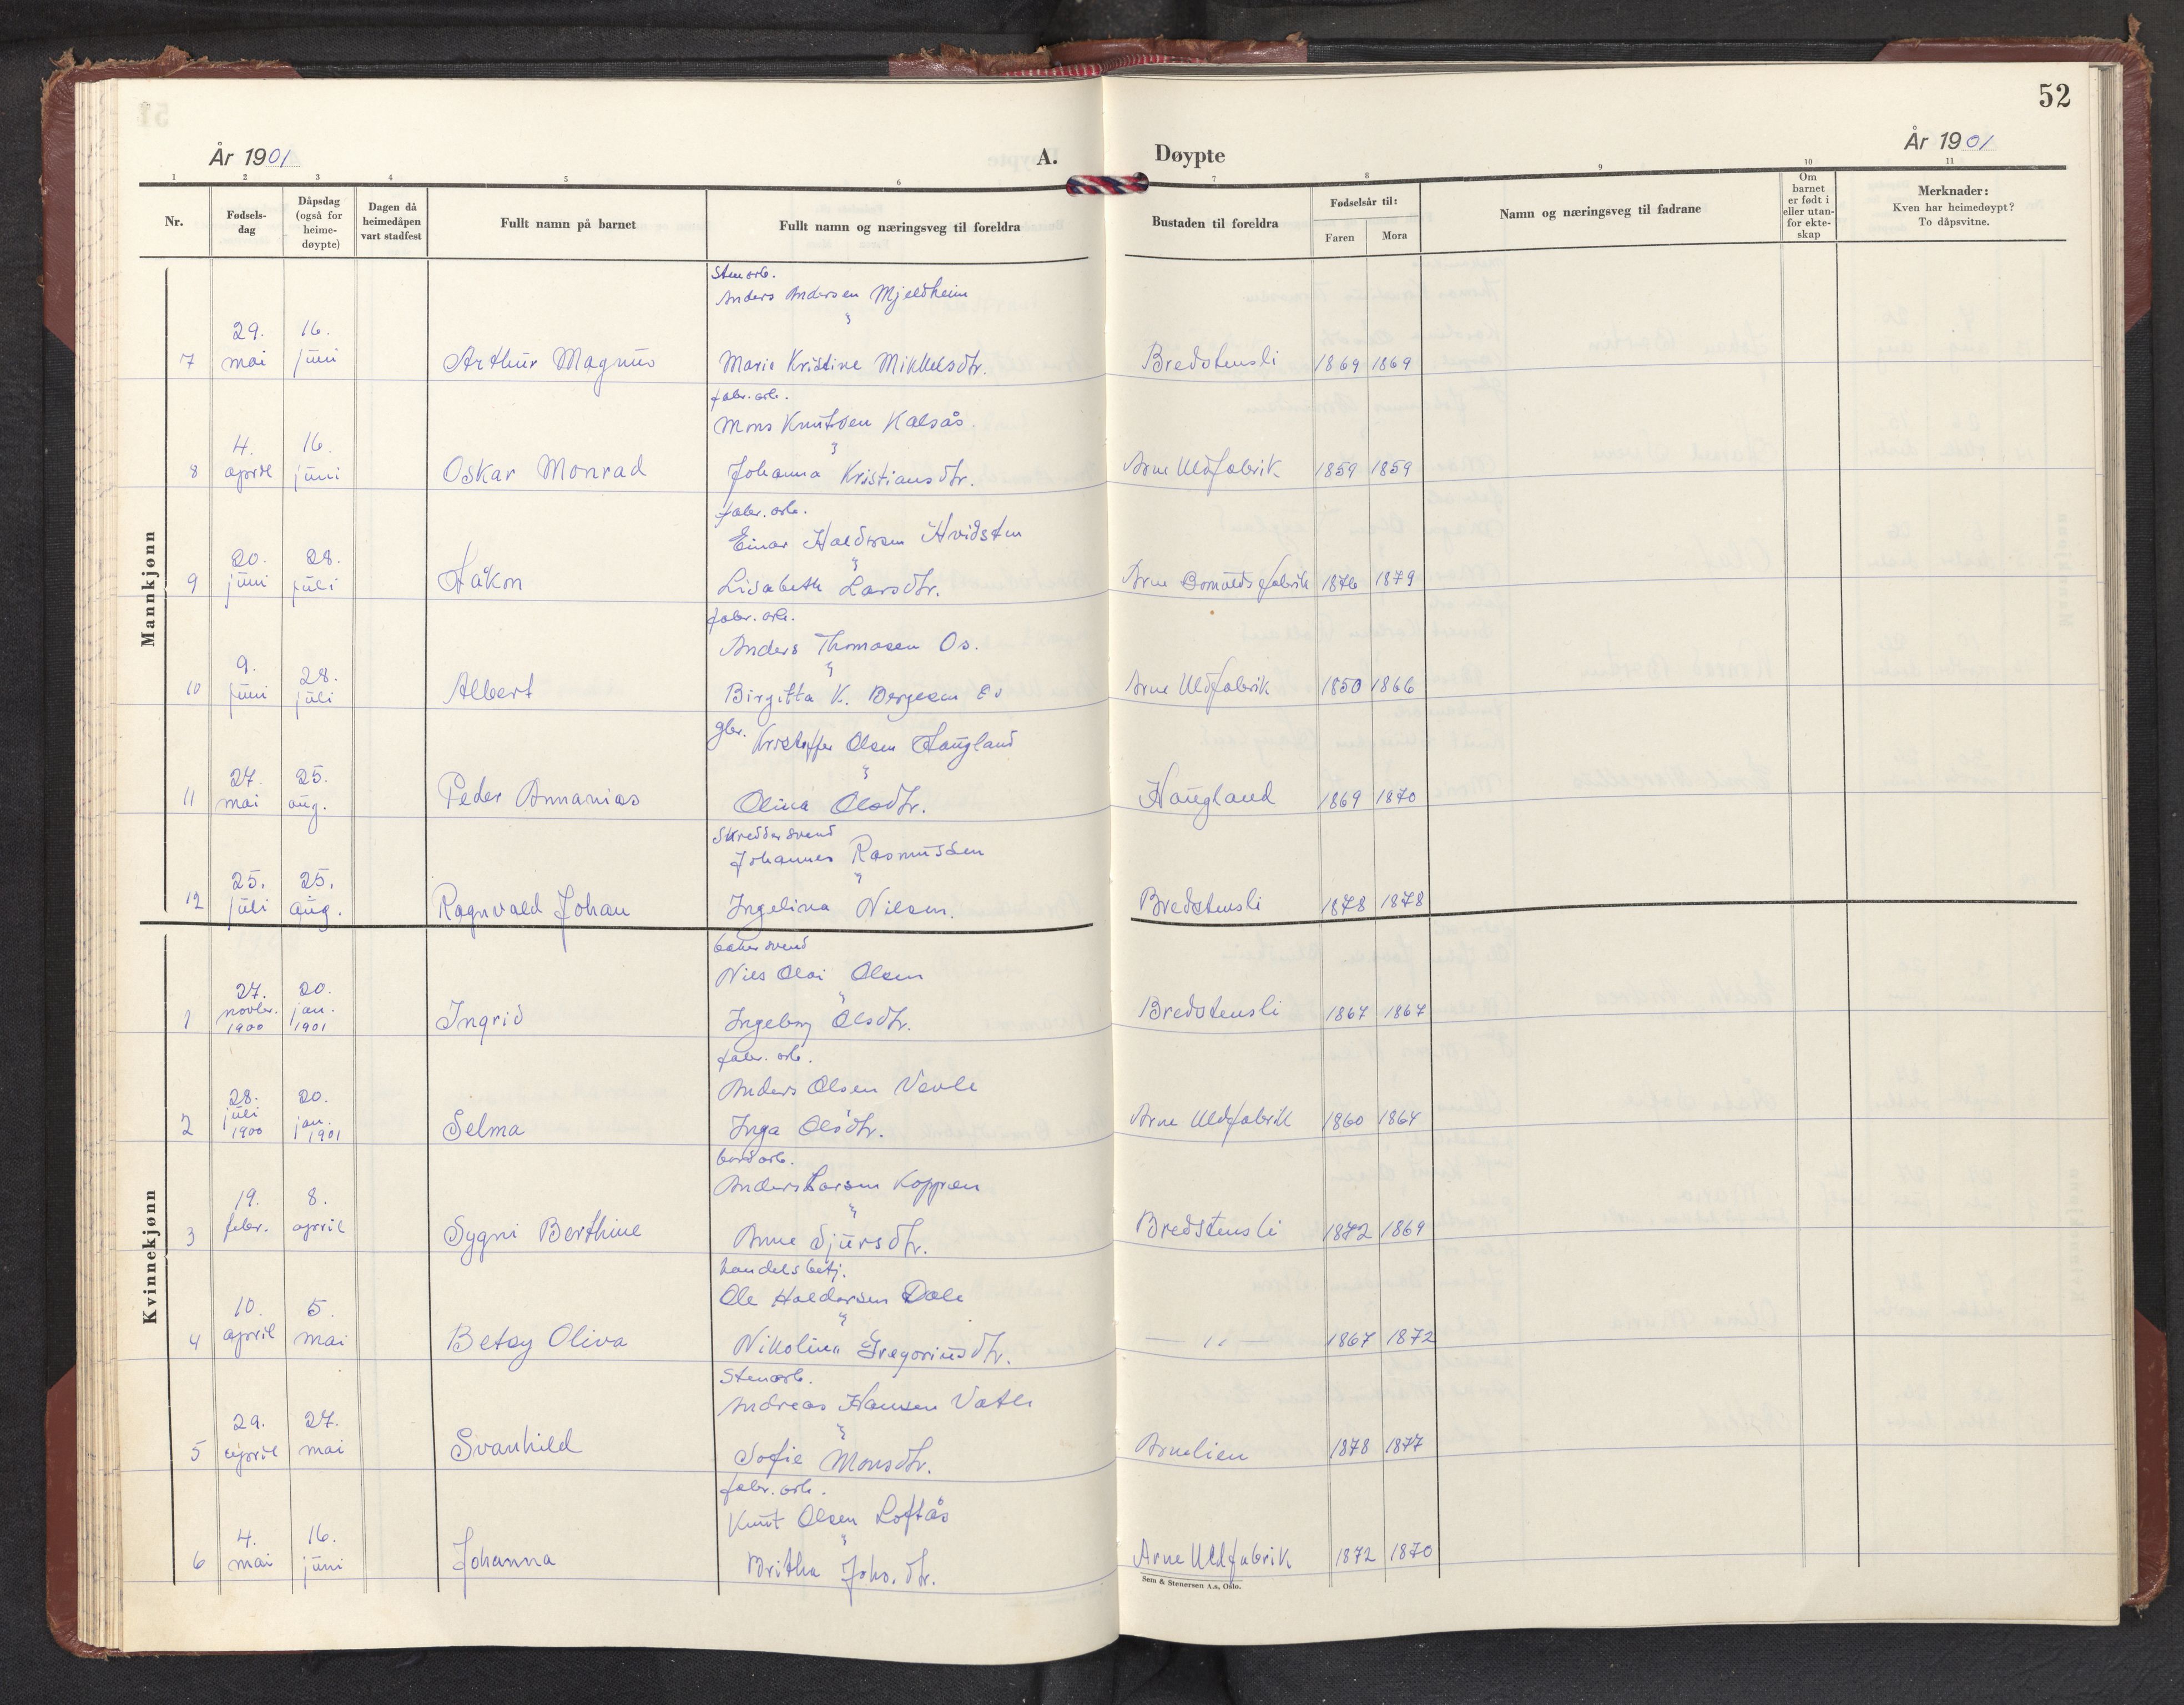 52
År 1901
A.
Døypte
År 1901
1 2 3 4 5 6 7 8 9 10 11
Nr.
Fødsels-
dag
Dåpsdag
(også for
heime-
døypte)
Dagen då
heimedåpen
vart stadfest
Fullt namn på barnet
Fullt namn og næringsveg til foreldra
Bustaden til foreldra
Fødselsår til:
Faren
Mora
Namn og næringsveg til fadrane
Om
barnet
er født i
eller utan-
for ekte-
skap
Merknader:
Kven har heimedøypt?
To dåpsvitne.
Mannkjønn
Stenarb.
Anders Andersen Mjeldheim
29. 16.
7 mai juni Arthur Magnus Marie Kristine Mikkelsdtr. Bredstensli 1869 1869
fabr. arb.
Mons Knutsen Kalsås.
4. 16.
8 april juni Oskar Monrad Johanna Kristiansdtr. Arne Uldfabrik 1859 1859
fabr. arb.
Einar Haldorsen Hvidsten
20. 28.
9 juni juli Håkon Lisabeth Larsdtr. Arne Bomulds fabrik 1876 1879
fabr. arb.
Anders Thomasen Os.
9. 28.
10 juni juli Albert Birgitta K. Arne Uldfabrik 1850 1866
gbr. Kristoffer Olsen Haugland
27. 25.
11 mai aug. Peder Annanias Olina Olsdtr. Haugland 1869 1870
Skreddersvend
Johannes Rasmussen
25. 25.
12 juli aug. Ragnvald Johan Ingelina Nilsen. Bredstensli 1878 1878
Kvinnekjønn
bakersvend
Nils Olai Olsen
27. 20.
1 novbr. jan. Ingrid Ingeborg Olsdtr. Bredstensli 1867 1867
1900 1901
fabr. arb.
Anders Olsen Vevle
28. 20.
2 juli jan. Selma Inga Olsdtr. Arne Uldfabrik 1860 1864
1900 1901
Anders Larsen Koppren
19. 8.
3 febr. april Sygni Berthine Anne Sjursdtr. Bredstensli 1872 1869
handelsbetj.
Ole Haldorsen Dale
10. 5.
4 april mai Betsy Oliva Nikolina Gregoriusdtr. — " — 1867 1872
Stenarb.
Andreas Hansen Vatle
29. 27.
5 april mai Svanhild Sofie Monsdtr. Arnelien 1878 1877
fabr. arb.
Knut Olsen Loftås
4. 16.
6 mai juni Johanna Britha Johs. dtr. Arne Uldfabrik 1872 1870
Sem & Stenersen A.s, Oslo.